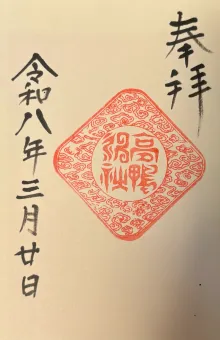 奉拝
高鴨神社
令和八年三月廿日